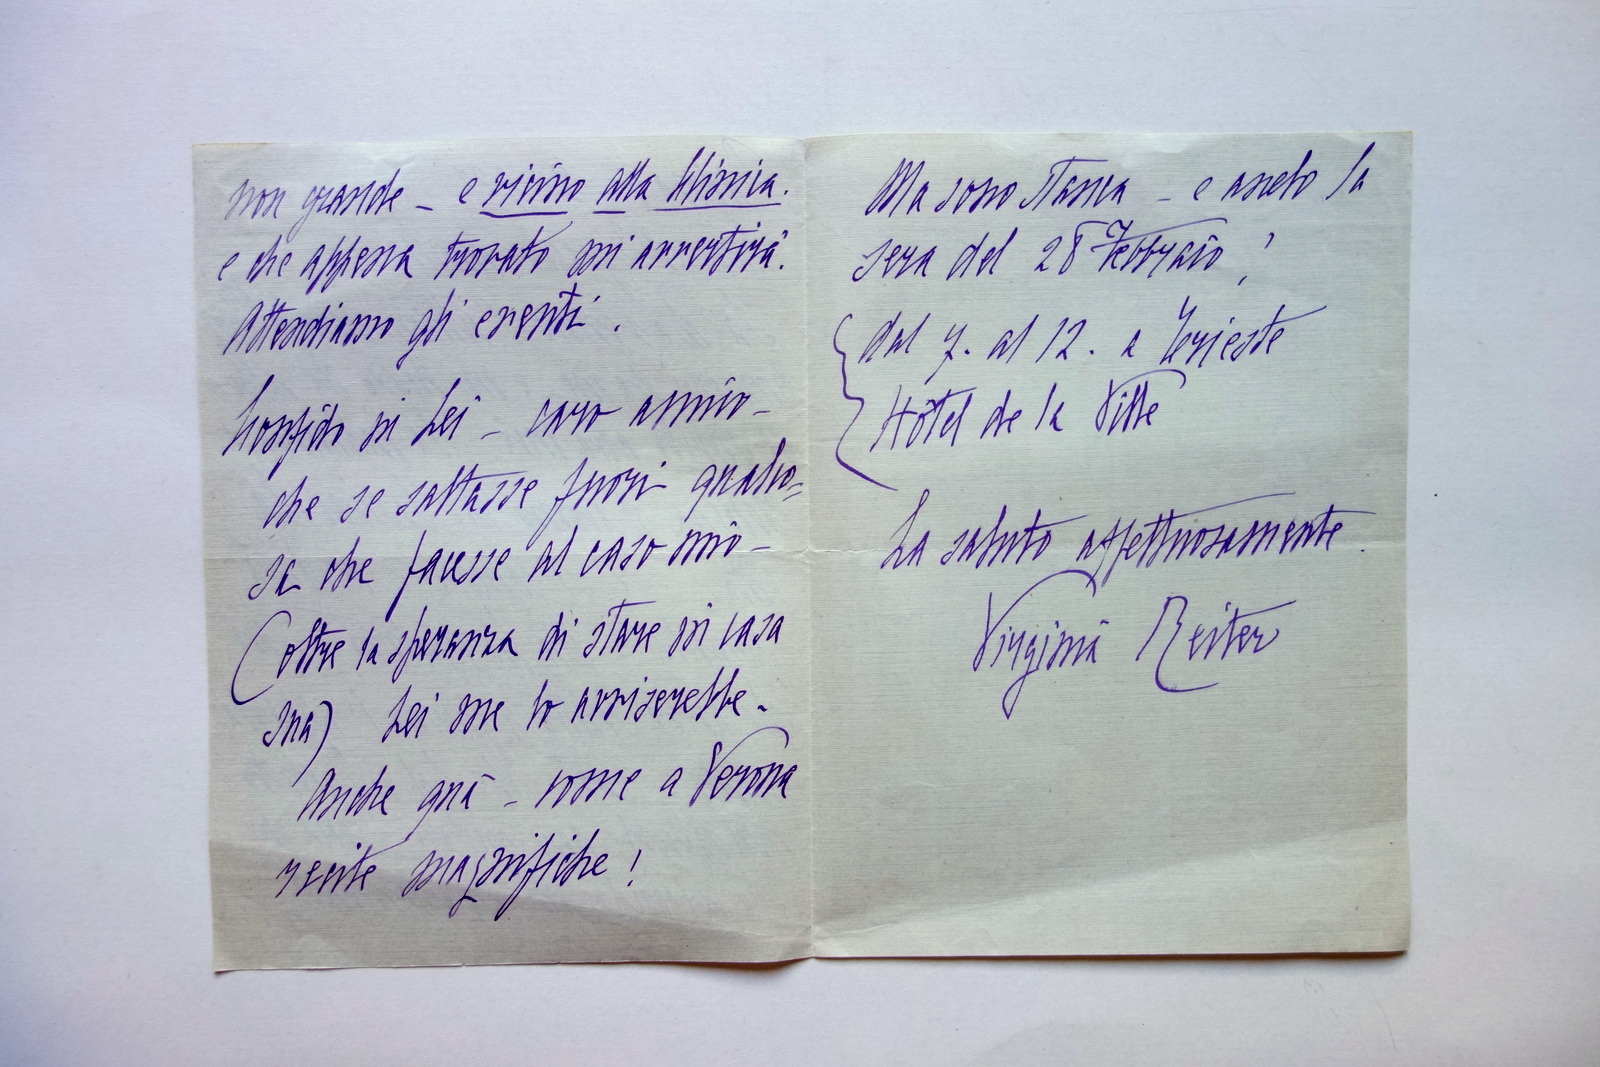 non grande – e vicino alla Clinica.
e che appena trovato mi avvertirà.
Attendiamo gli eventi.
Confido in Lei – caro amico –
che se saltasse fuori qualco=
sa che facesse al caso mio –
(oltre la speranza di stare in casa
sua) Lei me lo avviserebbe.
Anche quà – come a Verona
recite magnifiche!
Ma sono stanca – e anelo la
sera del 28 Febbraio!
{ dal 7. al 12. a Trieste
Hôtel de la Ville
La saluto affettuosamente
Virginia Reiter